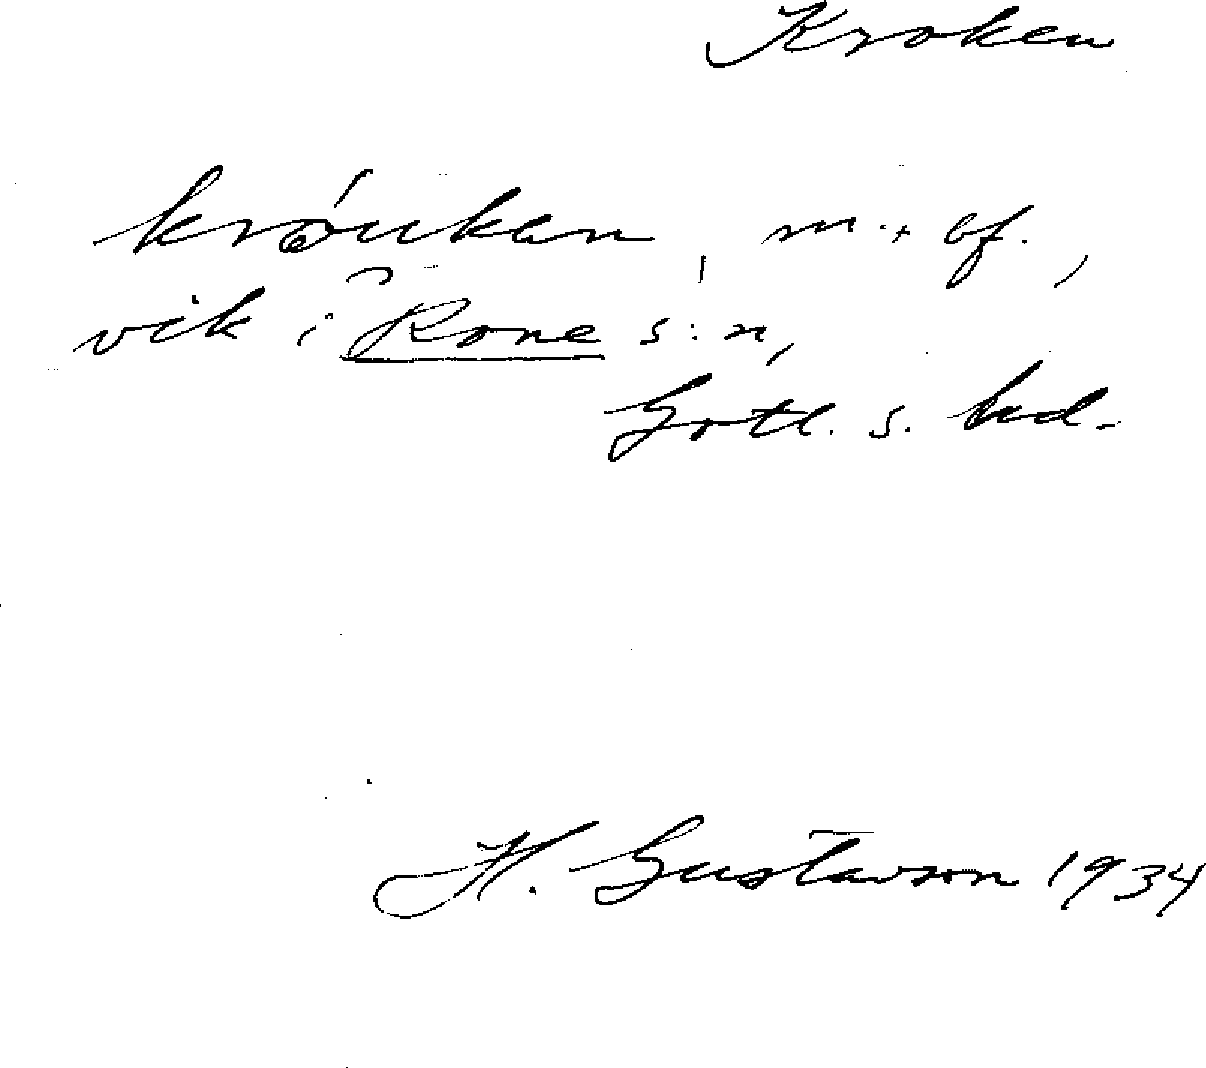 Kroken
króuken, m. + bf.,
vik i Rone s:n,
Gotl. s. hd.
H. Gustavson 1934